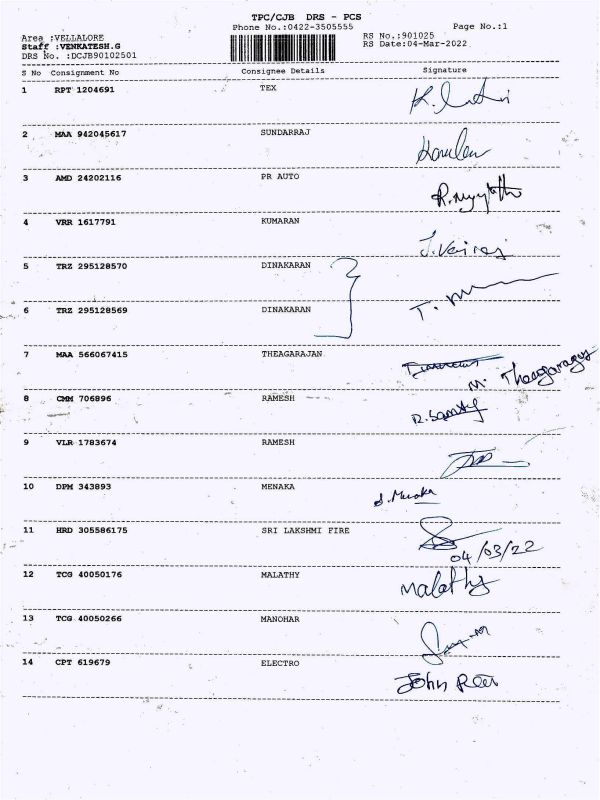 TPC/CJB DRS - PCS
Phone No.:0422-3505555 Page No.:1
Area :VELLALORE RS No.:901025
Staff :VENKATESH.G RS Date:04-Mar-2022
DRS No. :DCJB90102501
S No Consignment No Consignee Details Signature
1 RPT 1204691 TEX
2 MAA 942045617 SUNDARRAJ
3 AMD 24202116 PR AUTO
4 VRR 1617791 KUMARAN
5 TRZ 295128570 DINAKARAN
6 TRZ 295128569 DINAKARAN
7 MAA 566067415 THEAGARAJAN
M. Theagaragan
8 CMM 706896 RAMESH
9 VLR 1783674 RAMESH
10 DPM 343893 MENAKA
11 HRD 305586175 SRI LAKSHMI FIRE
04/03/22
12 TCG 40050176 MALATHY Malathy
13 TCG 40050266 MANOHAR
14 CPT 619679 ELECTRO
John